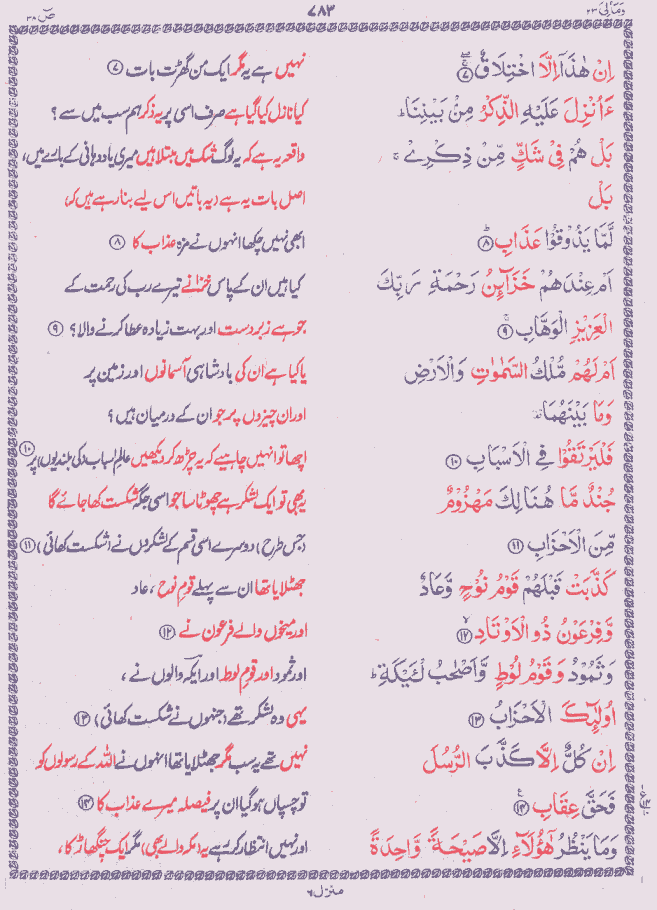 وَمَالِیَ ٢٣
٧٨٣
صٓ ٣٨
اِنْ هٰذَاۤ اِلَّا اخْتِلَاقٌ ۖۚ ﴿٧﴾ نہیں ہے یہ مگر ایک من گھڑت بات ﴿٧﴾
ءَاُنْزِلَ عَلَيْهِ الذِّكْرُ مِنْۢ بَيْنِنَا ؕ کیا نازل کیا گیا ہے صرف اسی پر یہ ذکر ہم سب میں سے ؟
بَلْ هُمْ فِيْ شَكٍّ مِّنْ ذِكْرِيْ ۚ واقعہ یہ ہے کہ یہ لوگ شک میں مبتلا ہیں میری یاد دہانی کے بارے میں،
بَلْ اصل بات یہ ہے (یہ باتیں اس لیے بنا رہے ہیں کہ)
لَّمَّا يَذُوْقُوْا عَذَابِ ؕ ﴿٨﴾ ابھی نہیں چکھا انہوں نے مزہ عذاب کا ﴿٨﴾
اَمْ عِنْدَهُمْ خَزَآئِنُ رَحْمَةِ رَبِّكَ کیا ہیں ان کے پاس خزانے تیرے رب کی رحمت کے
الْعَزِيْزِ الْوَهَّابِ ۚ ﴿٩﴾ جو ہے زبردست اور بہت زیادہ عطا کرنے والا؟ ﴿٩﴾
اَمْ لَهُمْ مُّلْكُ السَّمٰوٰتِ وَالْاَرْضِ یا کیا ہے ان کی بادشاہی آسمانوں اور زمین پر
وَمَا بَيْنَهُمَا ۟ اور ان چیزوں پر جو ان کے درمیان ہیں ؟
فَلْيَرْتَقُوْا فِي الْاَسْبَابِ ﴿١٠﴾ اچھا تو انہیں چاہیے کہ یہ چڑھ کر دیکھیں عالمِ اسباب (کی بلندیوں) پر ﴿١٠﴾
جُنْدٌ مَّا هُنَالِكَ مَهْزُوْمٌ یہ بھی تو ایک لشکر ہے چھوٹا سا جو اسی جگہ شکست کھا جائے گا
مِّنَ الْاَحْزَابِ ﴿١١﴾ (جس طرح) دوسرے اسی قسم کے لشکروں نے (شکست کھائی) ﴿١١﴾
كَذَّبَتْ قَبْلَهُمْ قَوْمُ نُوْحٍ وَّعَادٌ جھٹلایا تھا ان سے پہلے قومِ نوح ، عاد
وَّفِرْعَوْنُ ذُو الْاَوْتَادِ ۙ ﴿١٢﴾ اور میخوں والے فرعون نے ﴿١٢﴾
وَثَمُوْدُ وَقَوْمُ لُوْطٍ وَّاَصْحٰبُ لْئَيْكَةِ ؕ اور ثمود اور قومِ لوط اور ایکہ والوں نے ،
اُولٰٓئِكَ الْاَحْزَابُ ﴿١٣﴾ یہی وہ لشکر تھے (جنہوں نے شکست کھائی) ﴿١٣﴾
اِنْ كُلٌّ اِلَّا كَذَّبَ الرُّسُلَ نہیں تھے یہ سب مگر جھٹلایا تھا انہوں نے اللہ کے رسولوں کو
فَحَقَّ عِقَابِ ۧ ﴿١٤﴾ تو چسپاں ہو گیا ان پر فیصلہ میرے عذاب کا ﴿١٤﴾
وَمَا يَنْظُرُ هٰٓؤُلَآءِ اِلَّا صَيْحَةً وَّاحِدَةً اور نہیں انتظار کر رہے یہ (مکہ والے بھی) مگر ایک چنگھاڑ کا ،
منزل ٦